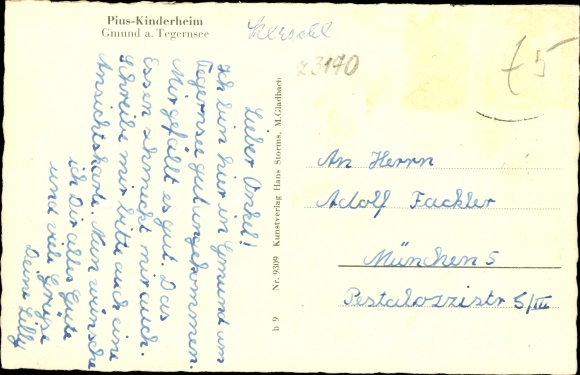 Pius-Kinderheim
Gmund a. Tegernsee
z 3170
£5
Lieber Onkel!
Ich bin hier in Gmund am
Tegernsee gut angekommen.
Mir gefällt es gut. Das
Essen schmeckt mir auch.
Schreibe mir bitte auch eine
Ansichtskarte. Nun wünsche
ich Dir alles Gute
und viele Grüße
Deine Lilly
b 9 Nr. 9309 Kunstverlag Hans Storms, M.Gladbach
An Herrn
Adolf Fackler
München 5
Pestalozzistr 5/III